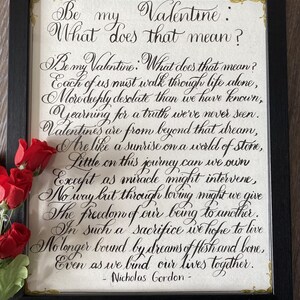 Be my Valentine:
What does that mean?
Be my Valentine: What does that mean?
Each of us must walk through life alone,
More deeply desolate than we have known,
Yearning for a truth we've never seen.
Valentines are from beyond that dream,
Are like a sunrise on a world of stone,
Little on this journey can we own
Except as miracle might intervene,
No way but through loving might we give
The freedom of our being to another.
In such a sacrifice we hope to live
No longer bound by dreams of flesh and bone,
Even as we bind our lives together.
- Nicholas Gordon -